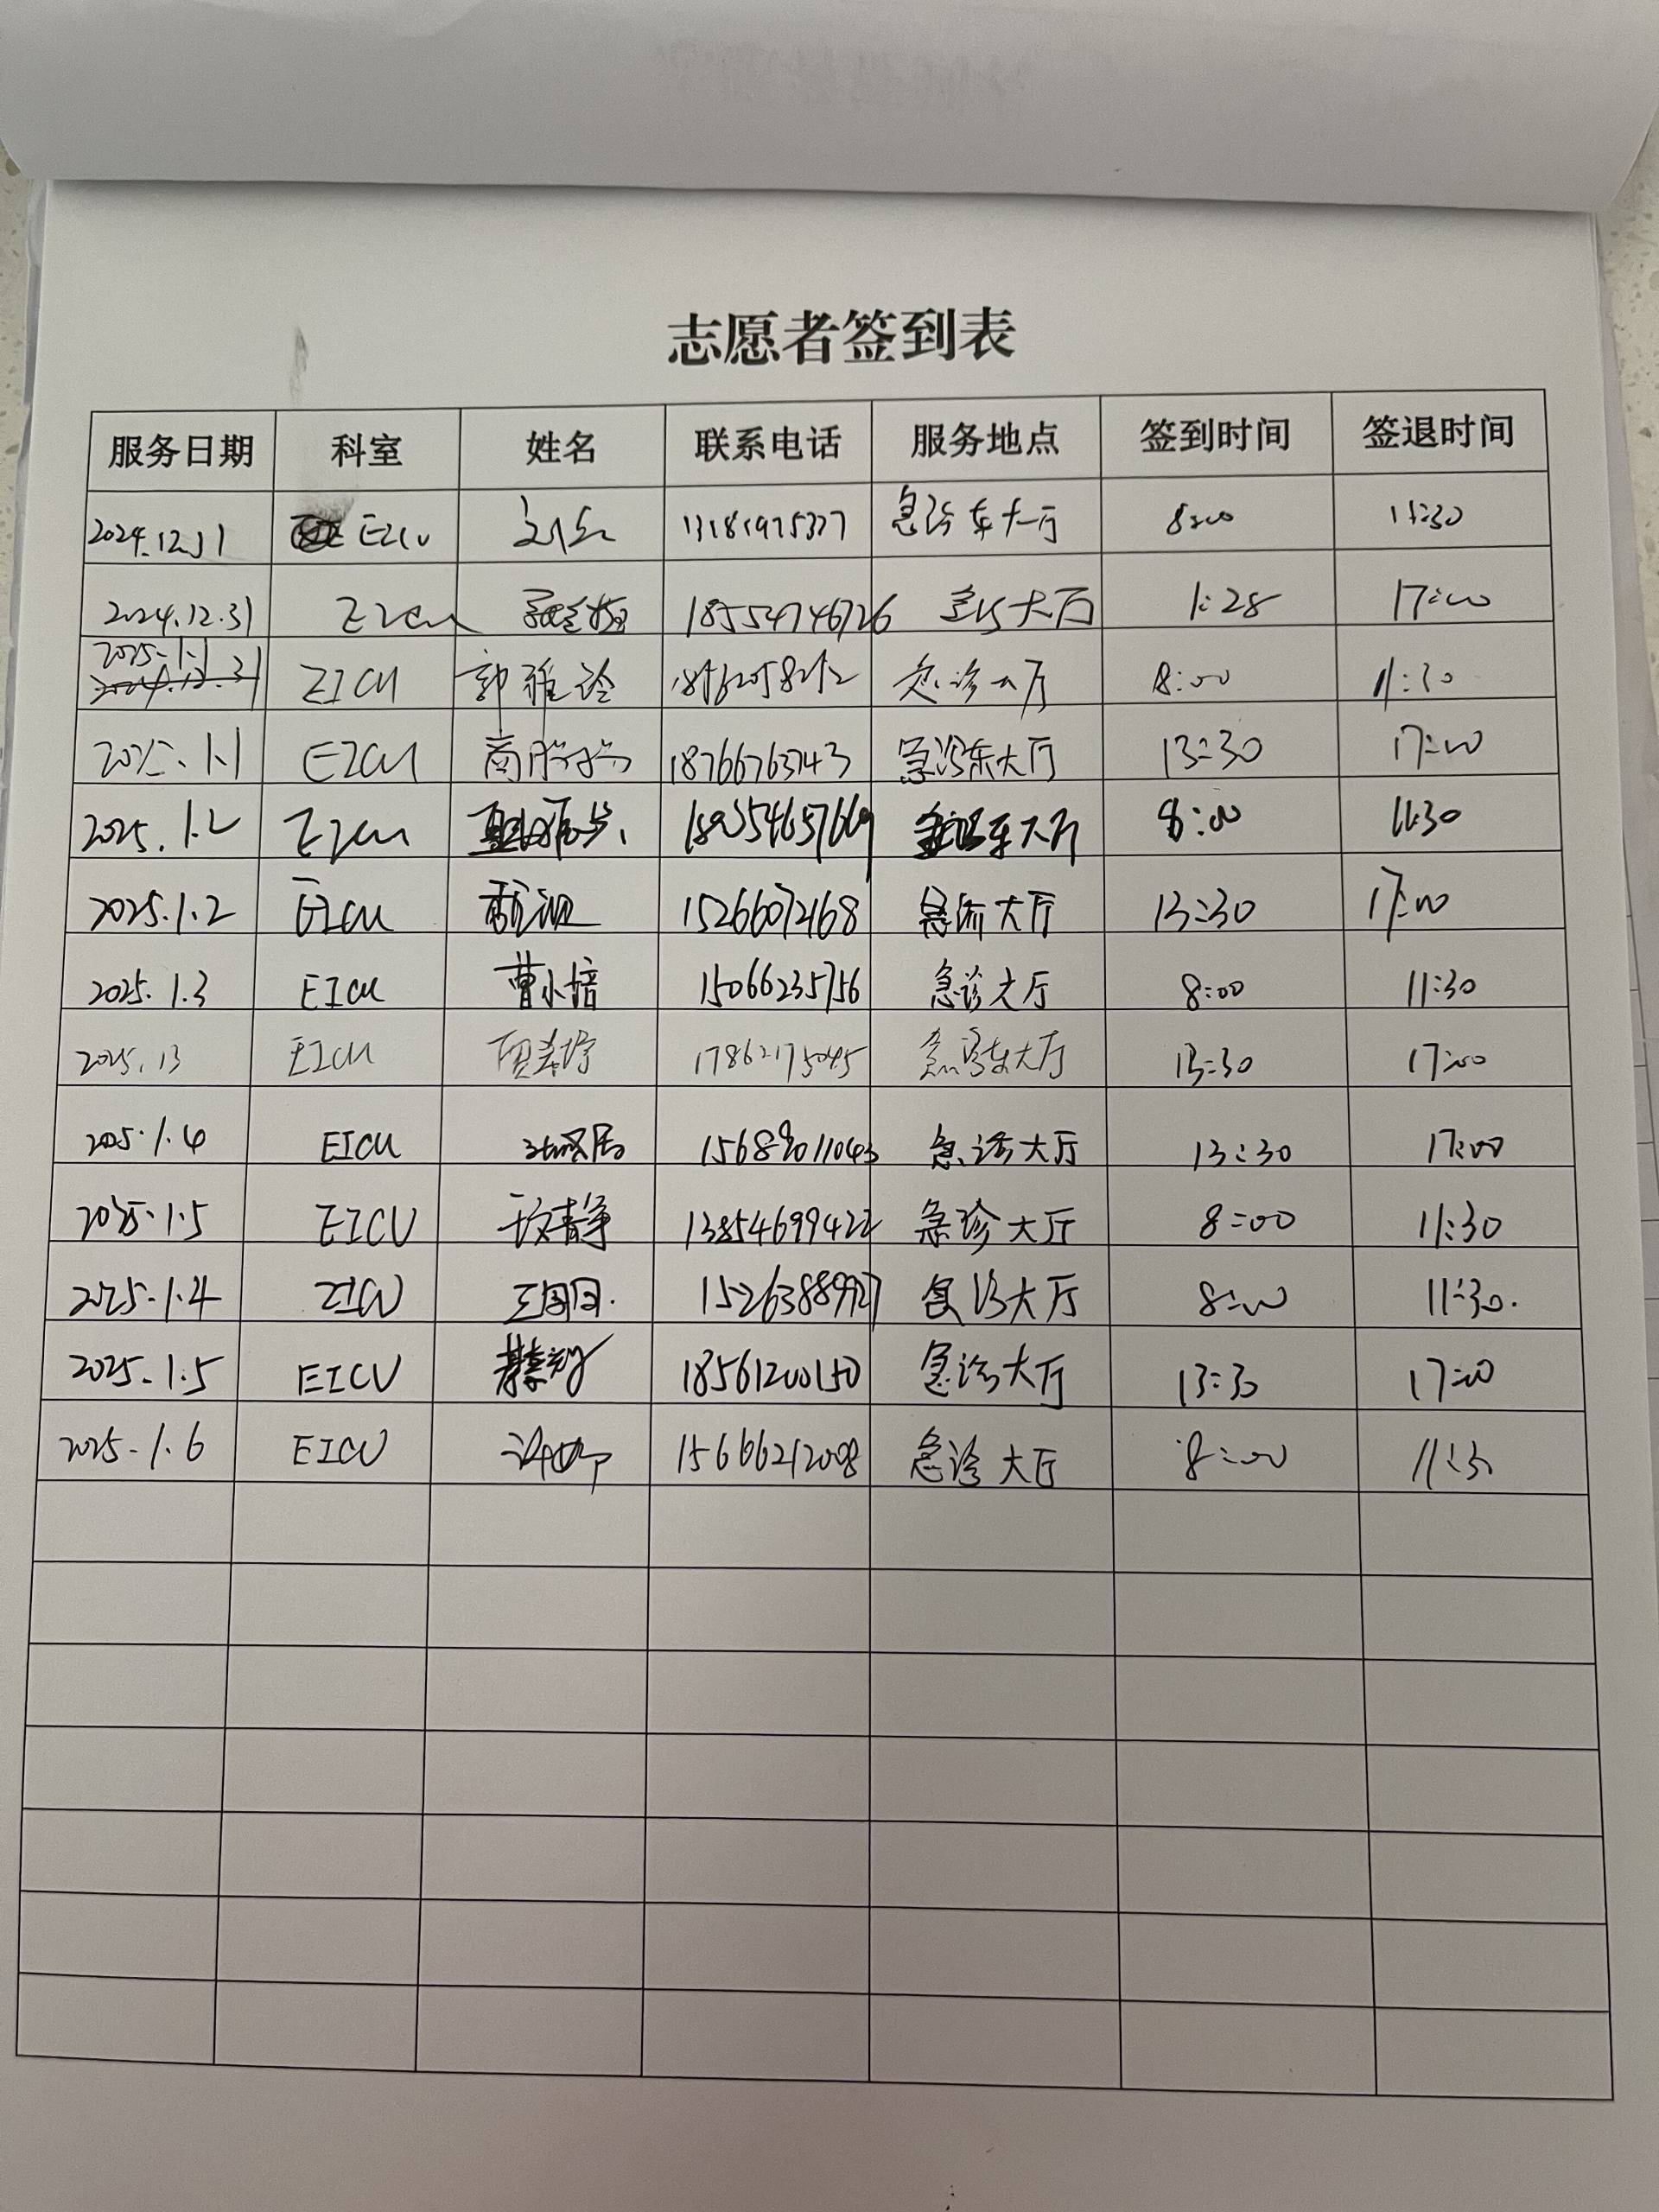 志愿者签到表
服务日期 科室 姓名 联系电话 服务地点 签到时间 签退时间
2024.12.31 EICU 13181975327 急诊东大厅 8:00 11:30
2024.12.31 EICU 18554746726 急诊大厅 1:28 17:00
2025.1.1 EICU 郭雅玲 急诊大厅 8:00 11:30
2025.1.1 EICU 18766763743 急诊东大厅 13:30 17:00
2025.1.2 EICU 大厅 8:00 11:30
2025.1.2 EICU 15266072168 急诊大厅 13:30 17:00
2025.1.3 EICU 曹小培 15066235756 急诊大厅 8:00 11:30
2025.1.3 EICU 17862175045 急诊东大厅 13:30 17:00
2025.1.4 EICU 急诊大厅 13:30 17:00
2025.1.5 EICU 13854699422 急诊大厅 8:00 11:30
2025.1.4 EICU 15263889927 急诊大厅 8:00 11:30.
2025.1.5 EICU 18561200150 急诊大厅 13:30 17:00
2025.1.6 EICU 急诊大厅 8:00 11:30